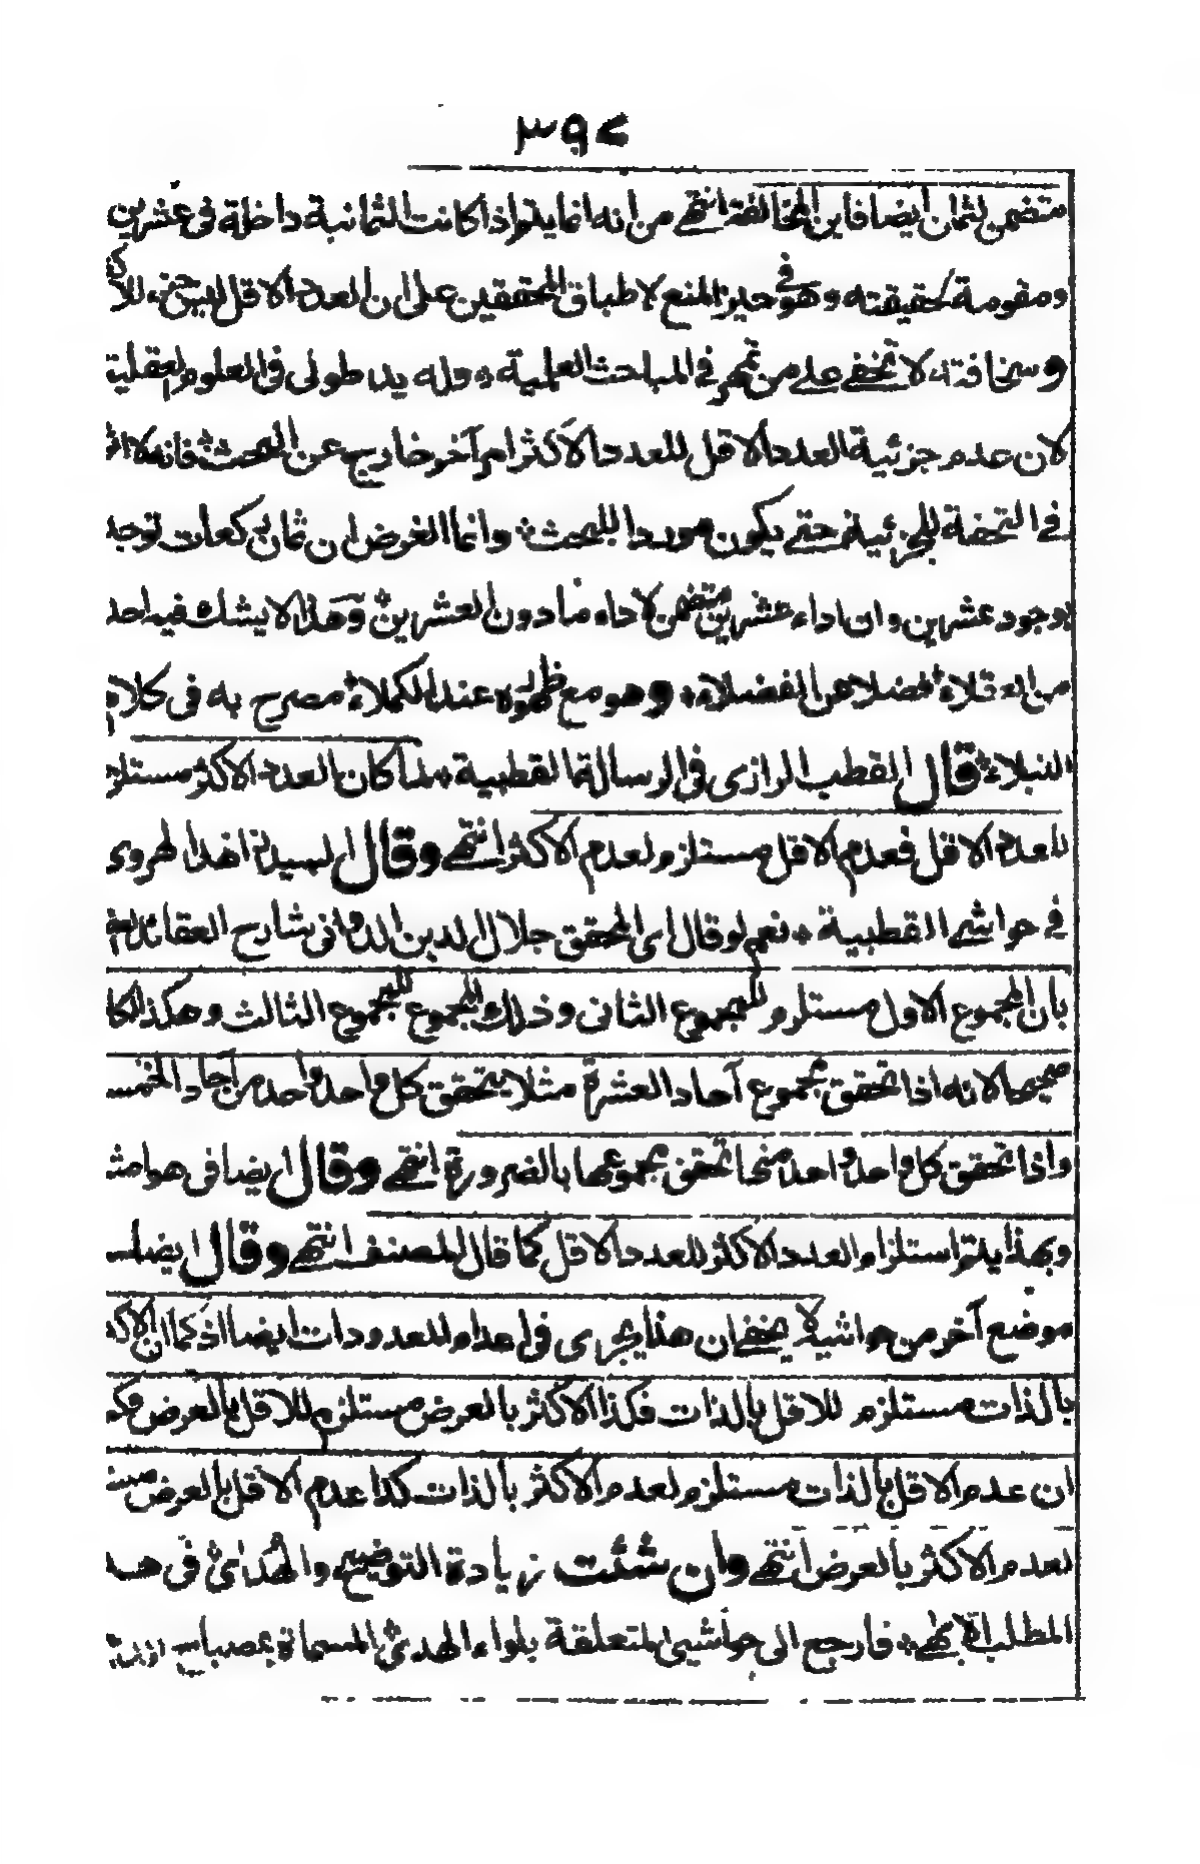 ٣٩٧
متضمن لثمان ايضا فاين المخالفة انتهى من انه انما يتم اذا كانت الثمانية داخلة فى عشرين
ومقومة لحقيقته وهو فى حيز المنع لاطباق المحققين على ان العدد الاقل ليس جزء للاكثر
وسخافته لا تخفى على من تمهر فى المباحث العلمية وله يد طولى فى العلوم العقلية
لان عدم جزئية العدد الاقل للعدد الاكثر امر آخر خارج عن البحث فانه لا اثر
فى التحفة للجزئية حتى يكون موردا للبحث وانما الغرض ان ثمان ركعات توجد
بوجود عشرين وان اداء عشرين متضمن لاداء ما دون العشرين وهذا لا يشك فيه احد
من العقلاء فضلا عن الفضلاء وهو مع ظهوره عند الكملاء مصرح به فى كلام
النبلاء قال القطب الرازى فى الرسالة القطبية لما كان العدد الاكثر مستلزم
للعدد الاقل فعدم الاقل مستلزم لعدم الاكثر انتهى وقال السيد الزاهد الهروى
فى حواشى القطبية نعم لو قال اى المحقق جلال الدين الدوانى شارح العقائد
بان المجموع الاول مستلزم للمجموع الثانى وذلك المجموع للمجموع الثالث وهكذا لكا
صحيحا لانه اذا تحقق مجموع آحاد العشرة مثلا يتحقق كل واحد واحد من آحاد الخمسـ
واذا تحقق كل واحد واحد منها تحقق مجموعها بالضرورة انتهى وقال ايضا فى هوامشـ
وبهذا يتم استلزام العدد الاكثر للعدد الاقل كما قال المصنف انتهى وقال ايضا
موضع آخر من حواشيه لا يخفى ان هذا يجرى فى اعدام المعدودات ايضا اذ كما ان الاكثـ
بالذات مستلزم للاقل بالذات فكذا الاكثر بالعرض مستلزم للاقل بالعرض وكـ
ان عدم الاقل بالذات مستلزم لعدم الاكثر بالذات كذا عدم الاقل بالعرض مستـ
لعدم الاكثر بالعرض انتهى وان شئت زيادة التوضيح والهدى فى هذ
المطلب الابهى فارجع الى حواشيى المتعلقة بلواء الهدى المسماة بمصباح